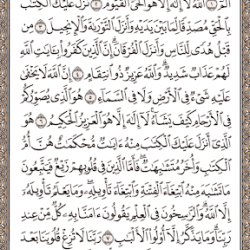 الٓمٓ ١ ٱللَّهُ لَآ إِلَٰهَ إِلَّا هُوَ ٱلۡحَيُّ ٱلۡقَيُّومُ ٢ نَزَّلَ عَلَيۡكَ ٱلۡكِتَٰبَ
بِٱلۡحَقِّ مُصَدِّقٗا لِّمَا بَيۡنَ يَدَيۡهِ وَأَنزَلَ ٱلتَّوۡرَىٰةَ وَٱلۡإِنجِيلَ ٣ مِن
قَبۡلُ هُدٗى لِّلنَّاسِ وَأَنزَلَ ٱلۡفُرۡقَانَۗ إِنَّ ٱلَّذِينَ كَفَرُواْ بِـَٔايَٰتِ ٱللَّهِ
لَهُمۡ عَذَابٞ شَدِيدٞۗ وَٱللَّهُ عَزِيزٞ ذُو ٱنتِقَامٍ ٤ إِنَّ ٱللَّهَ لَا يَخۡفَىٰ
عَلَيۡهِ شَيۡءٞ فِي ٱلۡأَرۡضِ وَلَا فِي ٱلسَّمَآءِ ٥ هُوَ ٱلَّذِي يُصَوِّرُكُمۡ
فِي ٱلۡأَرۡحَامِ كَيۡفَ يَشَآءُۚ لَآ إِلَٰهَ إِلَّا هُوَ ٱلۡعَزِيزُ ٱلۡحَكِيمُ ٦ هُوَ
ٱلَّذِيٓ أَنزَلَ عَلَيۡكَ ٱلۡكِتَٰبَ مِنۡهُ ءَايَٰتٞ مُّحۡكَمَٰتٌ هُنَّ أُمُّ
ٱلۡكِتَٰبِ وَأُخَرُ مُتَشَٰبِهَٰتٞۖ فَأَمَّا ٱلَّذِينَ فِي قُلُوبِهِمۡ زَيۡغٞ فَيَتَّبِعُونَ
مَا تَشَٰبَهَ مِنۡهُ ٱبۡتِغَآءَ ٱلۡفِتۡنَةِ وَٱبۡتِغَآءَ تَأۡوِيلِهِۦۖ وَمَا يَعۡلَمُ تَأۡوِيلَهُۥٓ
إِلَّا ٱللَّهُۗ وَٱلرَّٰسِخُونَ فِي ٱلۡعِلۡمِ يَقُولُونَ ءَامَنَّا بِهِۦ كُلّٞ مِّنۡ عِندِ
رَبِّنَاۗ وَمَا يَذَّكَّرُ إِلَّآ أُوْلُواْ ٱلۡأَلۡبَٰبِ ٧ رَبَّنَا لَا تُزِغۡ قُلُوبَنَا بَعۡدَ